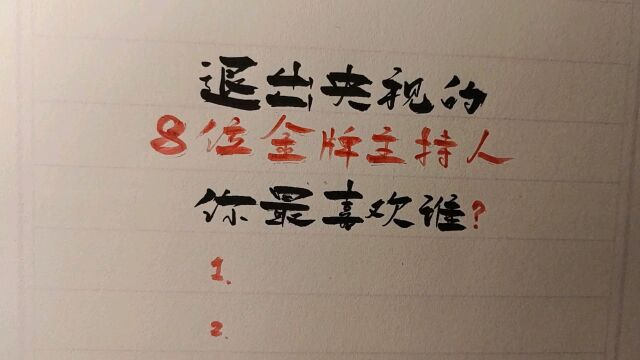 退出央视的
8位金牌主持人
你最喜欢谁?
1.
2